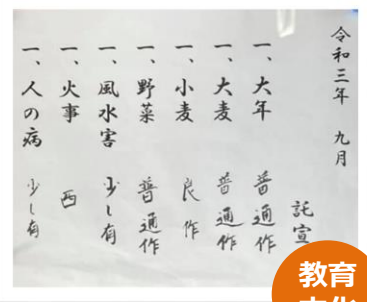 令和三年 九月
託宣
一、大年 普通作
一、大麦 普通作
一、小麦 良作
一、野菜 普通作
一、風水害 少し有
一、火事 西
一、人の病 少し有
教育
文化